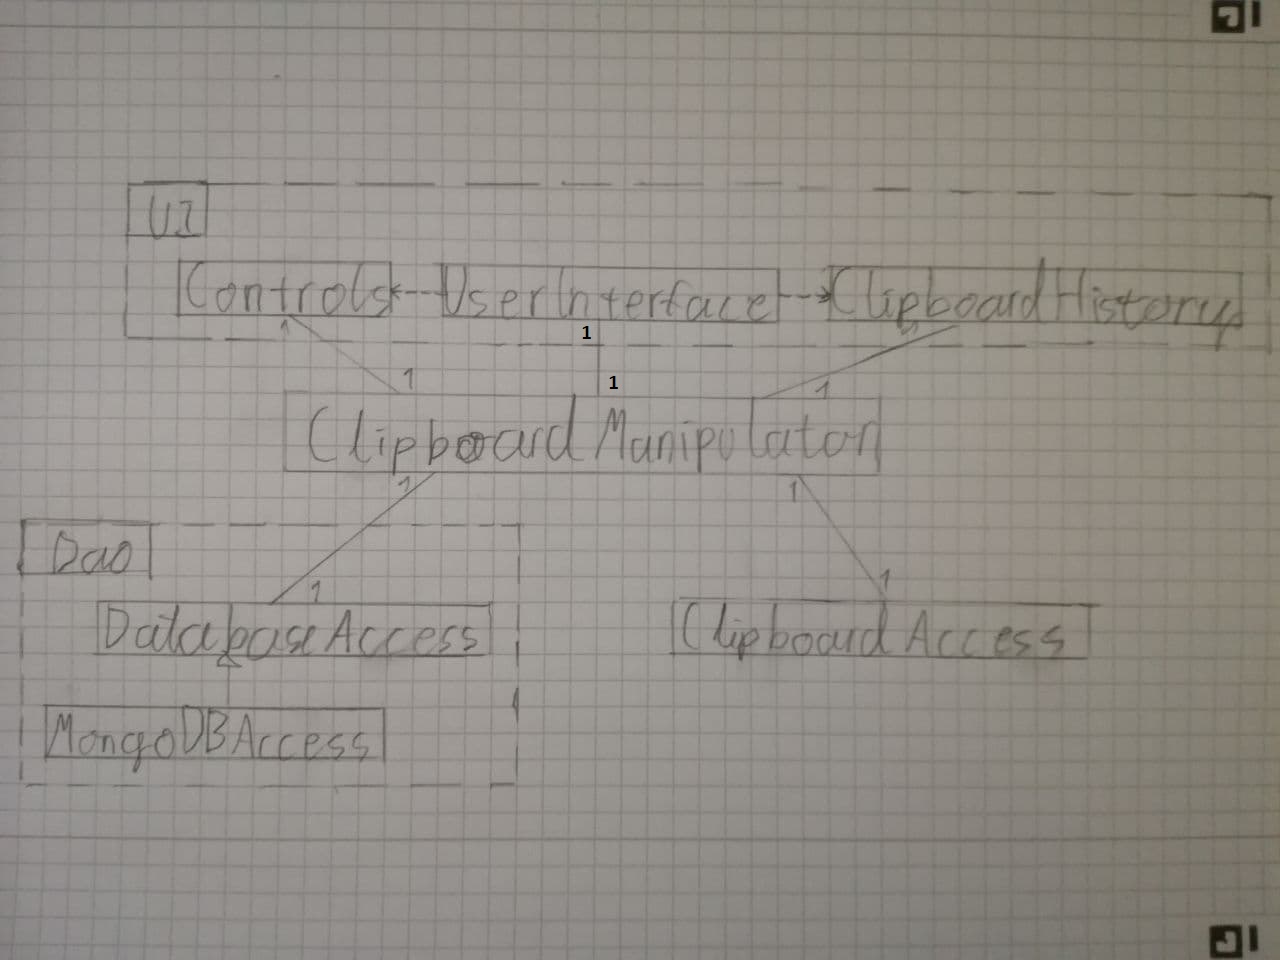 UI
Controls UserInterface ClipboardHistory
1 1 1
1 1 1
ClipboardManipulator
1 1
Dao
1 1
DatabaseAccess ClipboardAccess
MongoDBAccess